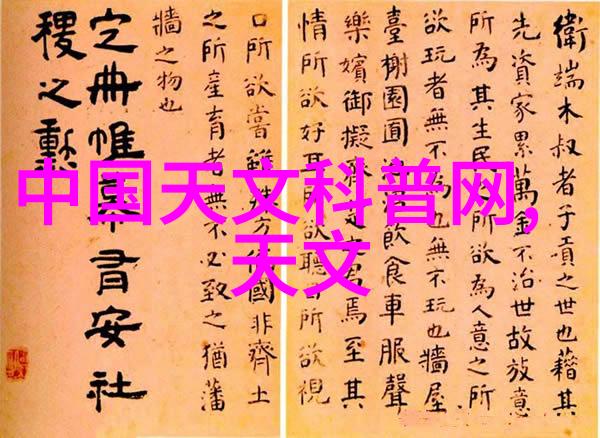 衛端木叔者子貢之世也藉其
先資家累萬金不治世故放意
所為其生民之所欲為人意之所
欲玩者無不為也無不玩也牆屋
臺榭園囿飲食車服聲
樂嬪御擬齊焉至其
情所欲好耳所欲聽目所欲視
口所欲嘗雖殊方偏國非齊土
之所產育者無不必致之猶藩
牆之物也
定冊帷幕有安社
稷之勳
中国天文科普网,
天文